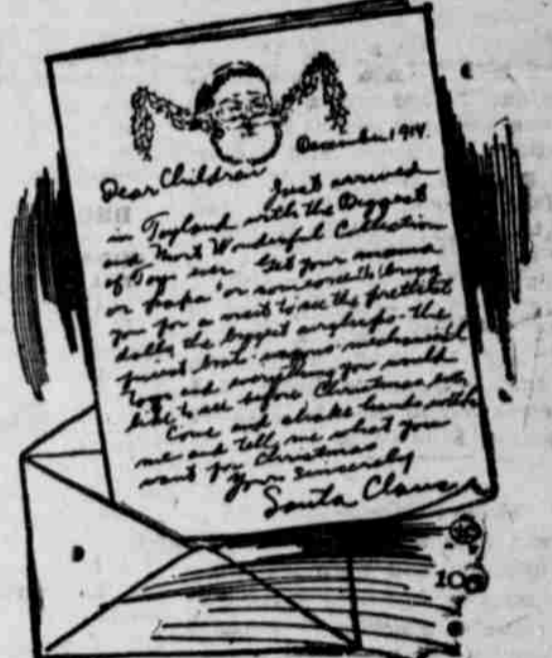 December 1914.
Dear Children
Just arrived
in Toyland with the Biggest
and Most Wonderful Collection
of Toys ever Get your mama
or papa or someone to bring
you for a visit to see the prettiest
dolls the biggest airships. the
finest boats. wagons mechanical
toys and everything you would
like to see before Christmas
Come and shake hands with
me and tell me what you
want for Christmas
Your Sincerely
Santa Claus